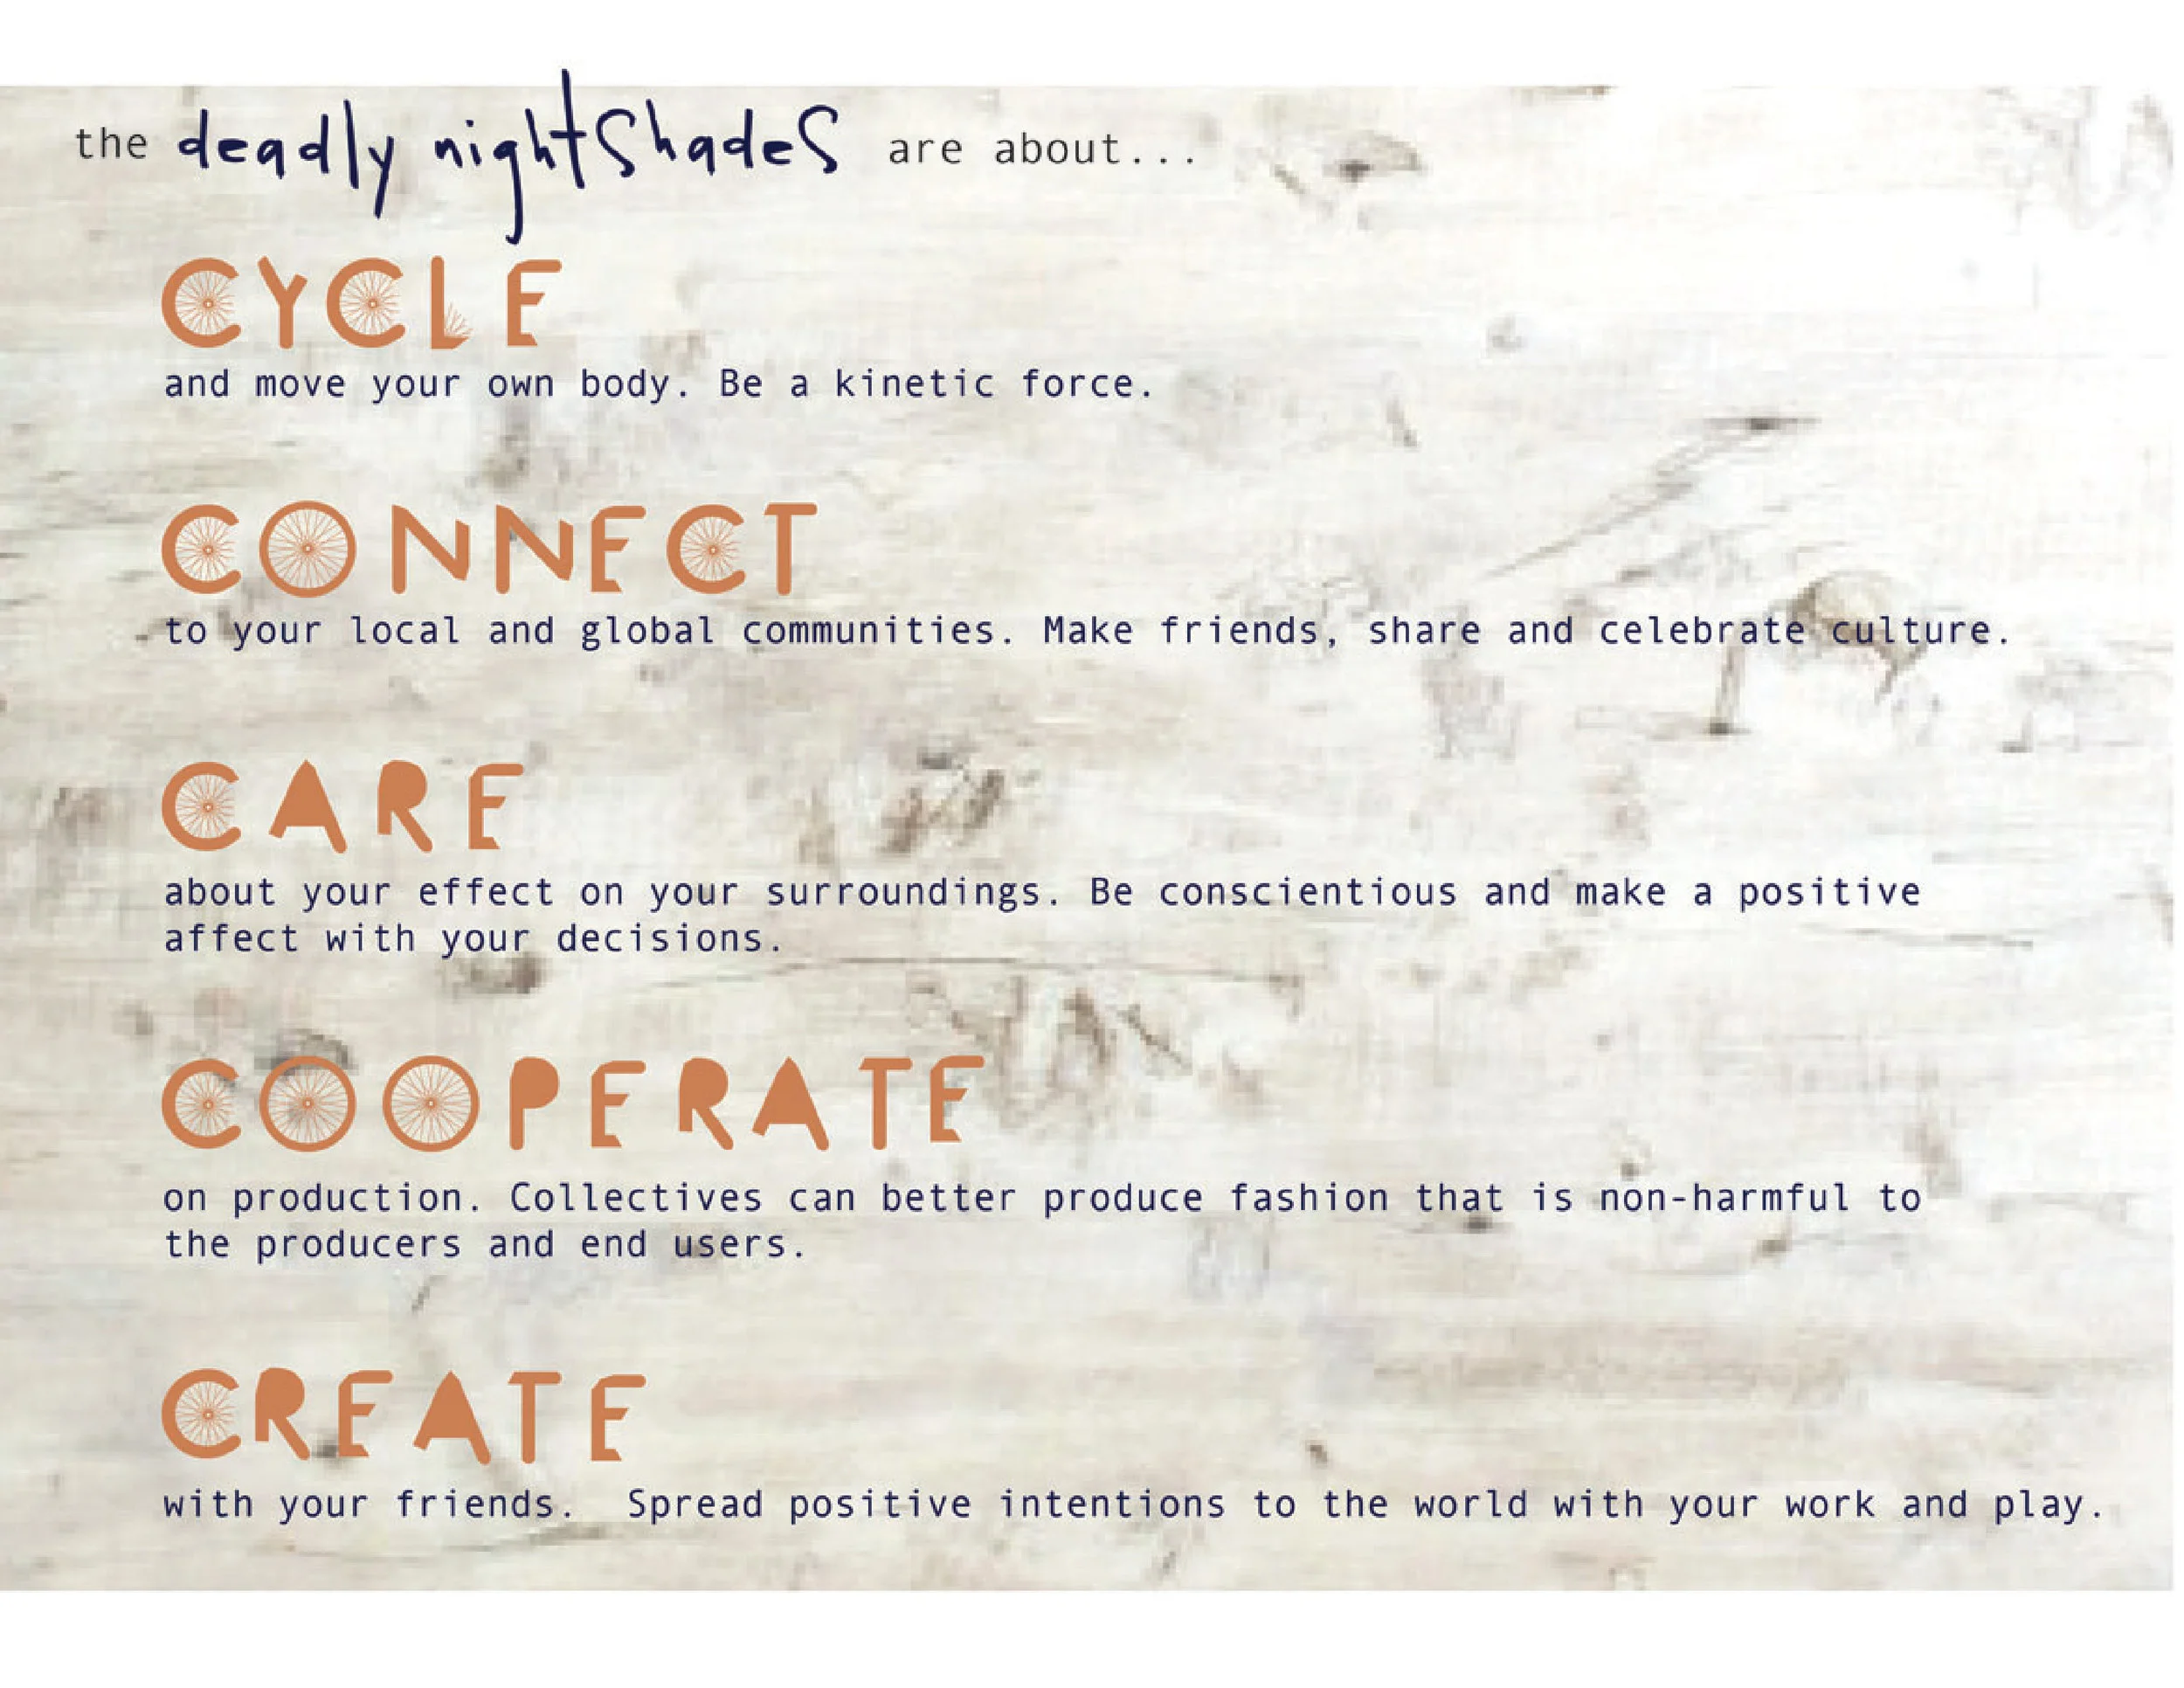 the deadly nightShadeS are about...
CYCLE
and move your own body. Be a kinetic force.
CONNECT
to your local and global communities. Make friends, share and celebrate culture.
CARE
about your effect on your surroundings. Be conscientious and make a positive
affect with your decisions.
COOPERATE
on production. Collectives can better produce fashion that is non-harmful to
the producers and end users.
CREATE
with your friends.  Spread positive intentions to the world with your work and play.